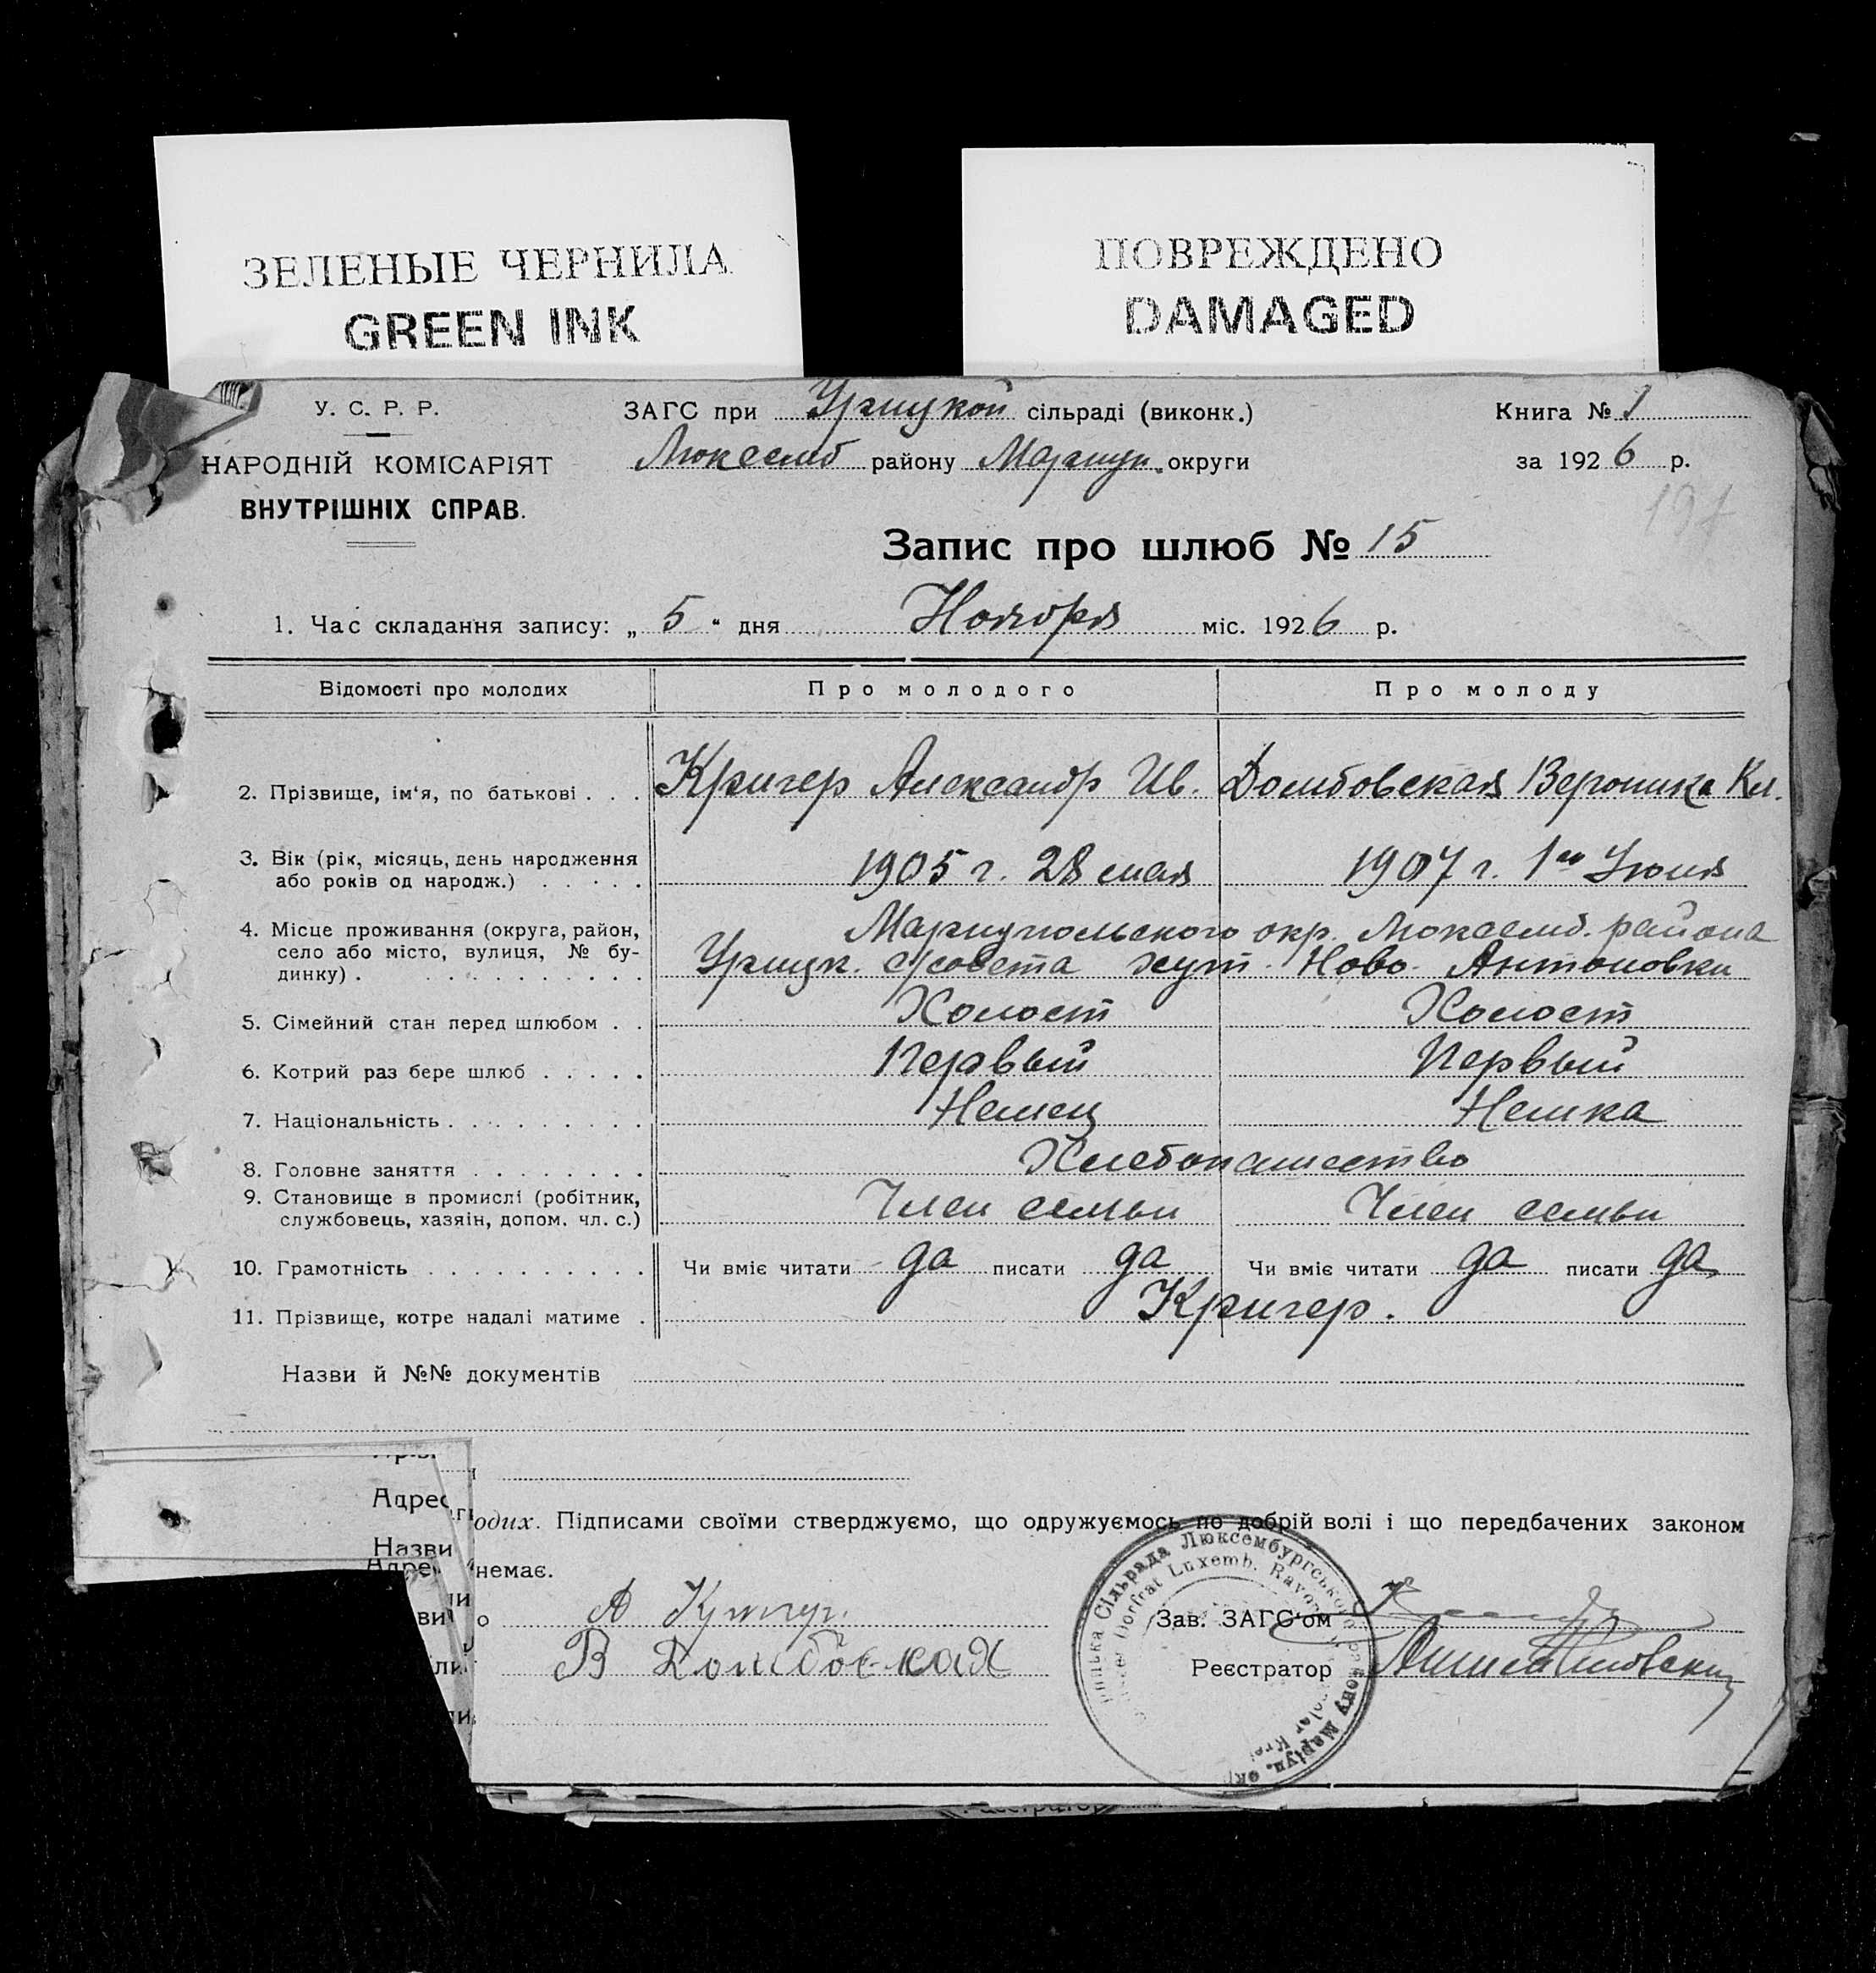 ЗЕЛЕНЫЕ ЧЕРНИЛА
GREEN INK
ПОВРЕЖДЕНО
DAMAGED
У. С. Р. Р.
НАРОДНІЙ КОМІСАРІЯТ
ВНУТРІШНІХ СПРАВ.
ЗАГС при Урицкой сільраді (виконк.)
Люксемб району Мариуп. округи
Книга № 1
за 1926 р.
197
Запис про шлюб № 15
1. Час складання запису: „ 5 “ дня Ноября міс. 1926 р.
Відомості про молодих
Про молодого
Про молоду
2. Прізвище, ім'я, по батькові . . . Кригер Александр Ив. Домбовская Вероника Кл.
3. Вік (рік, місяць, день народження
або років од народж.) . . . . . 1905 г. 28 мая 1907 г. 1го Июня
4. Місце проживання (округа, район,
село або місто, вулиця, № бу-
динку) . . . . . . . . . .
Мариупольского окр. Люксемб. района
Урицк. с/совета хут. Ново-Антоновки
5. Сімейний стан перед шлюбом . . Холост Холост
6. Котрий раз бере шлюб . . . . . Первый Первый
7. Національність . . . . . . . . . Немец Немка
8. Головне заняття . . . . . . . . Хлебопашество
9. Становище в промислі (робітник,
службовець, хазяїн, допом. чл. с.) Член семьи Член семьи
10. Грамотність . . . . . . . . . . . Чи вміє читати да писати да Чи вміє читати да писати да
11. Прізвище, котре надалі матиме . Кригер.
Назви й №№ документів
Адрес
Назви
одих. Підписами своїми стверджуємо, що одружуємось по добрій волі і що передбачених законом
немає.
А Кригер.
В Домбовская
Зав. ЗАГС'ом
Реєстратор
Сільрада Люксембургського району Маріуп. окр
Dorfrat Luxemb. Rayon